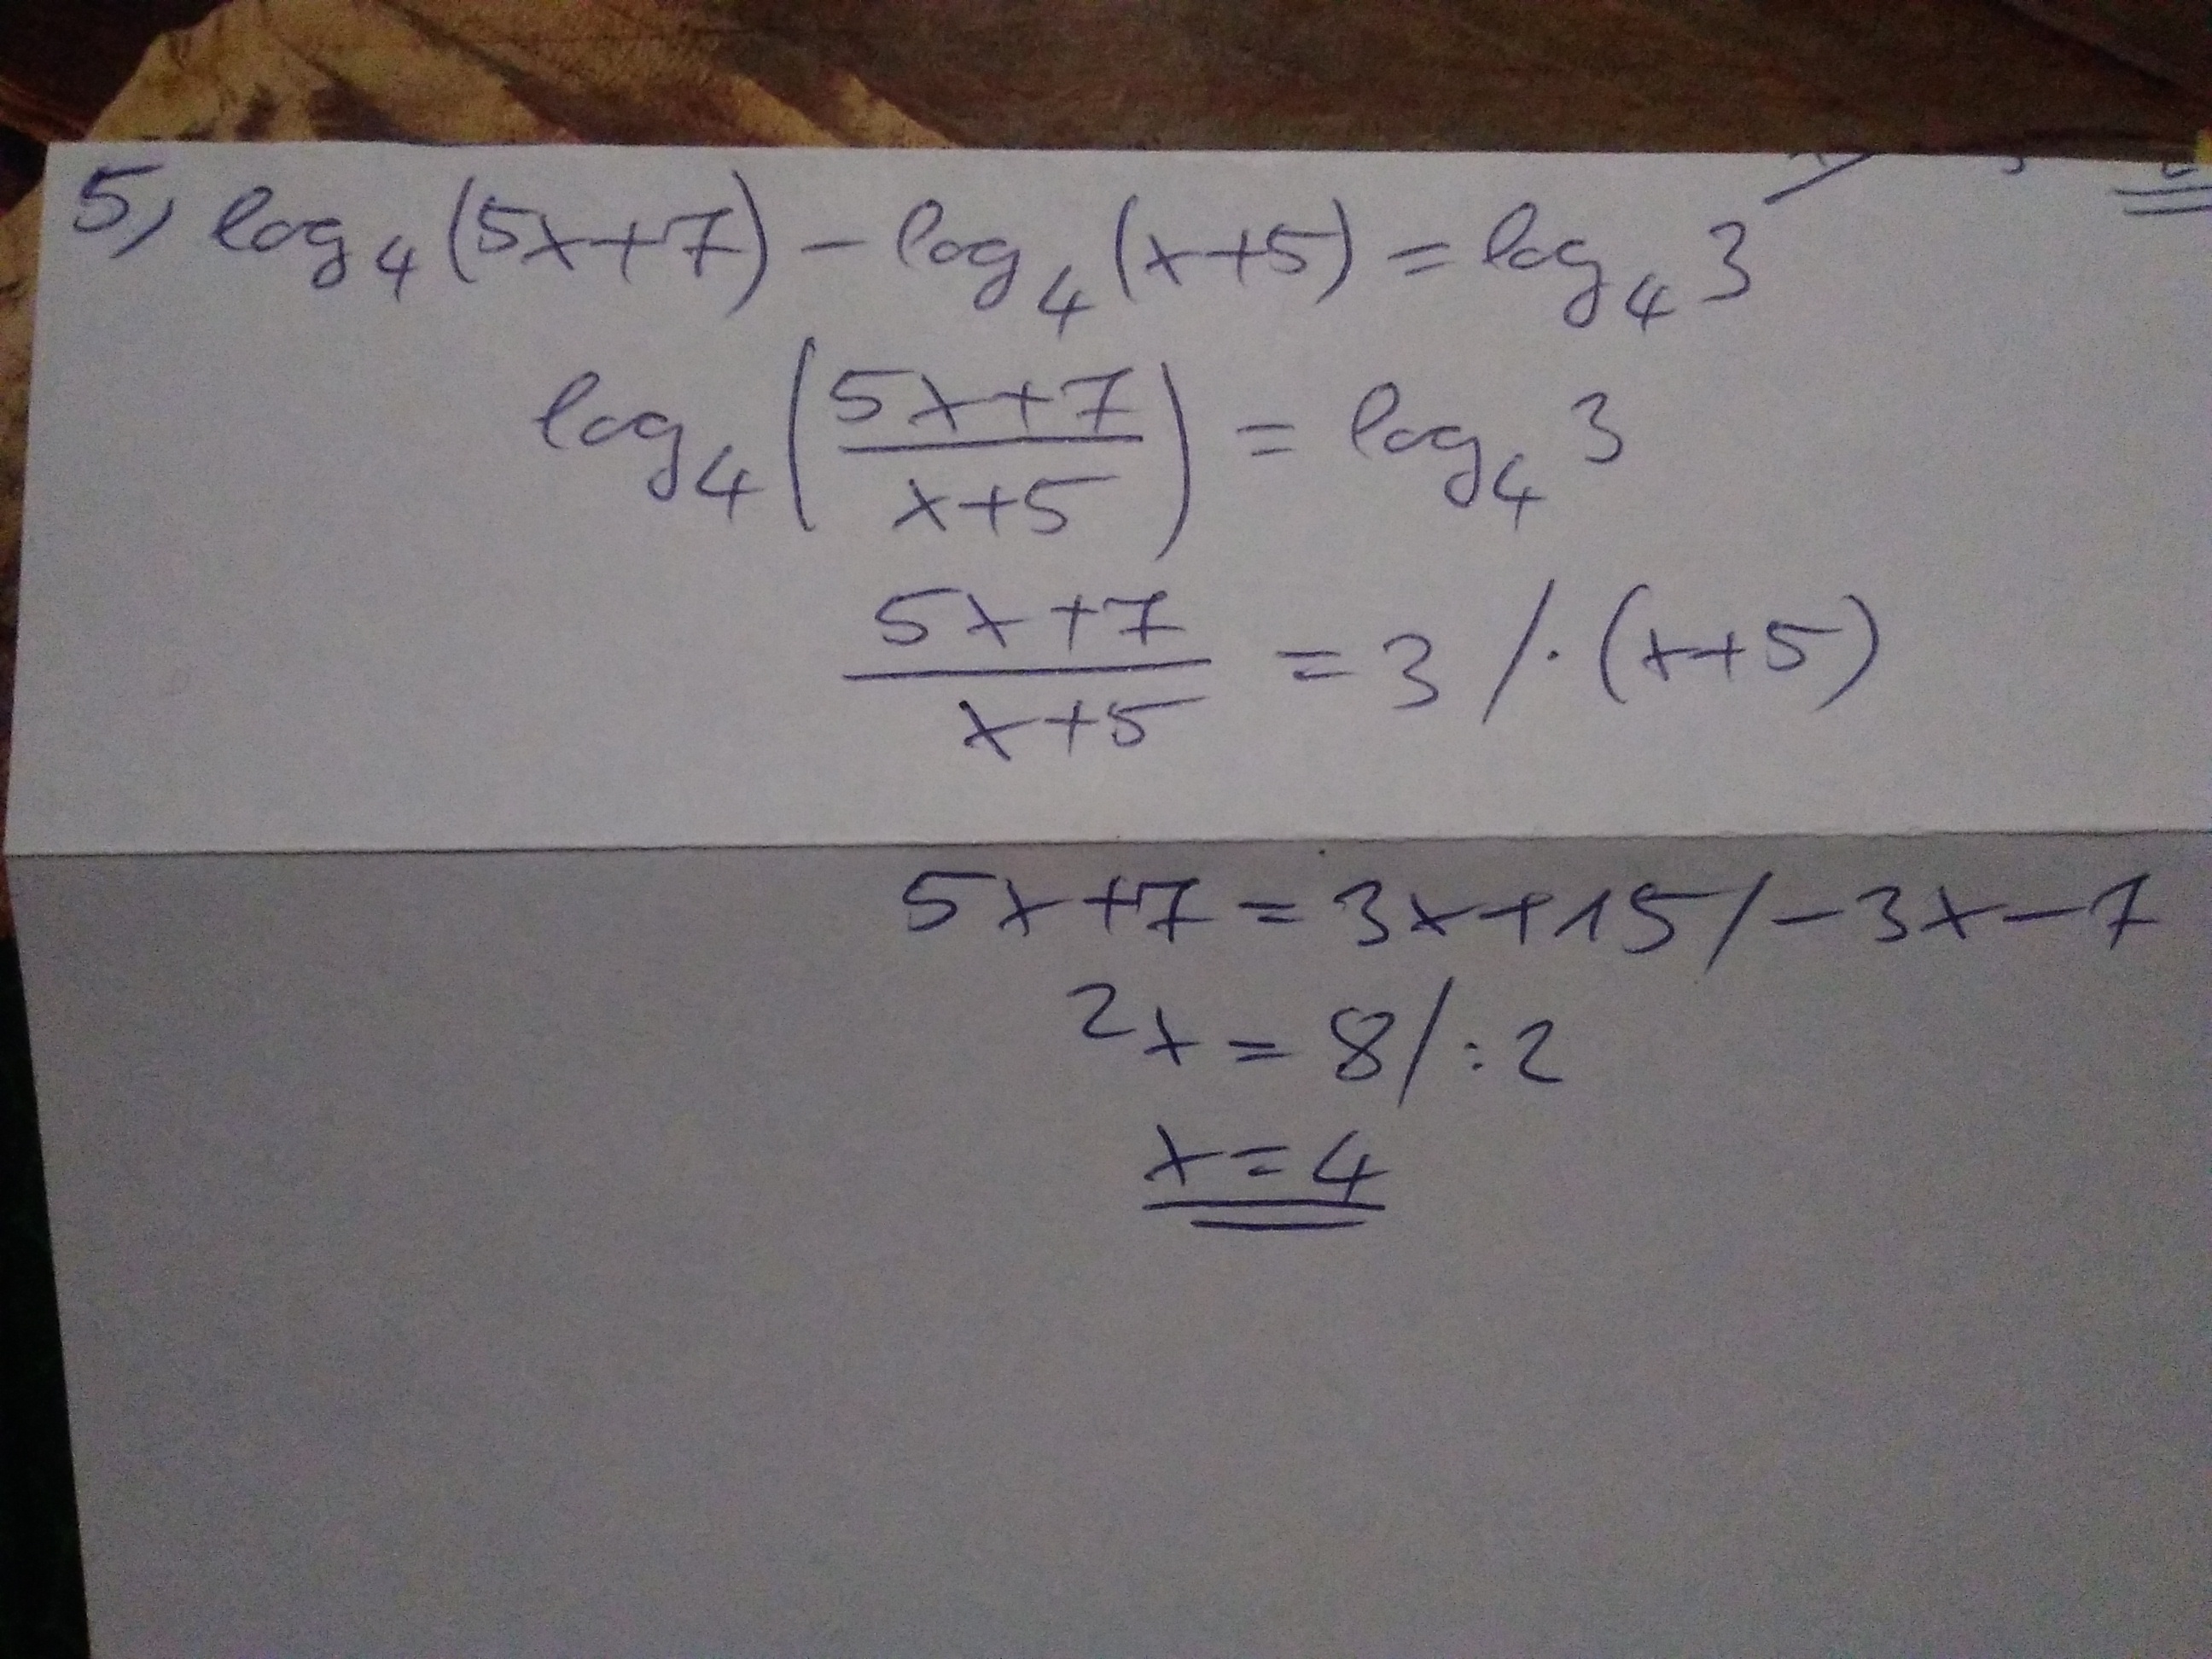 5, log₄(5x+7) - log₄(x+5) = log₄ 3
log₄((5x+7)/(x+5)) = log₄ 3
(5x+7)/(x+5) = 3 /·(x+5)
5x+7 = 3x+15 /-3x-7
2x = 8 /:2
x = 4